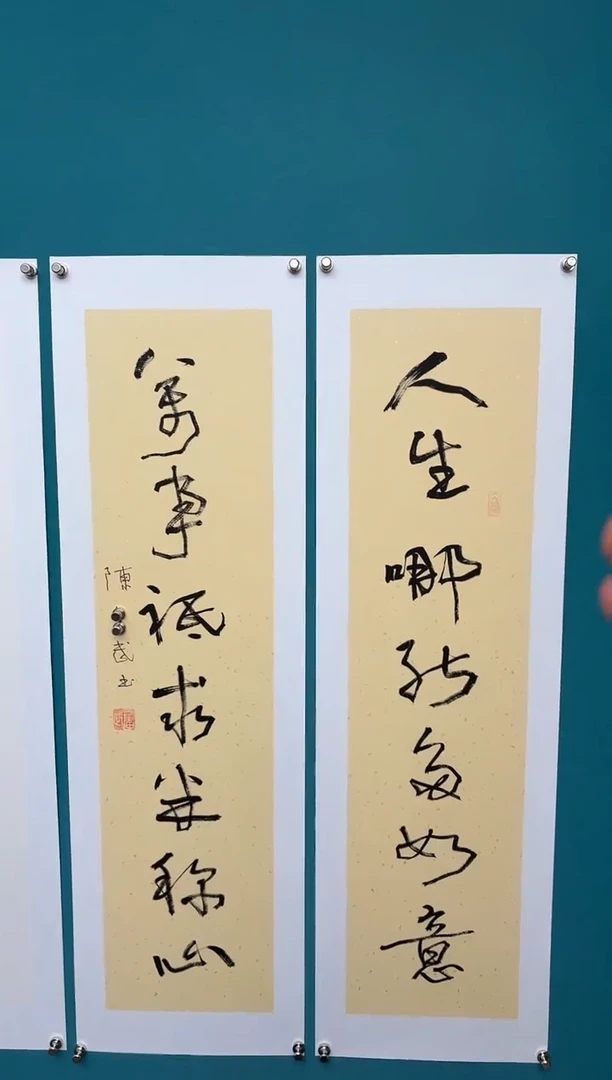 人生哪能多如意
萬事祗求半称心
陳武书